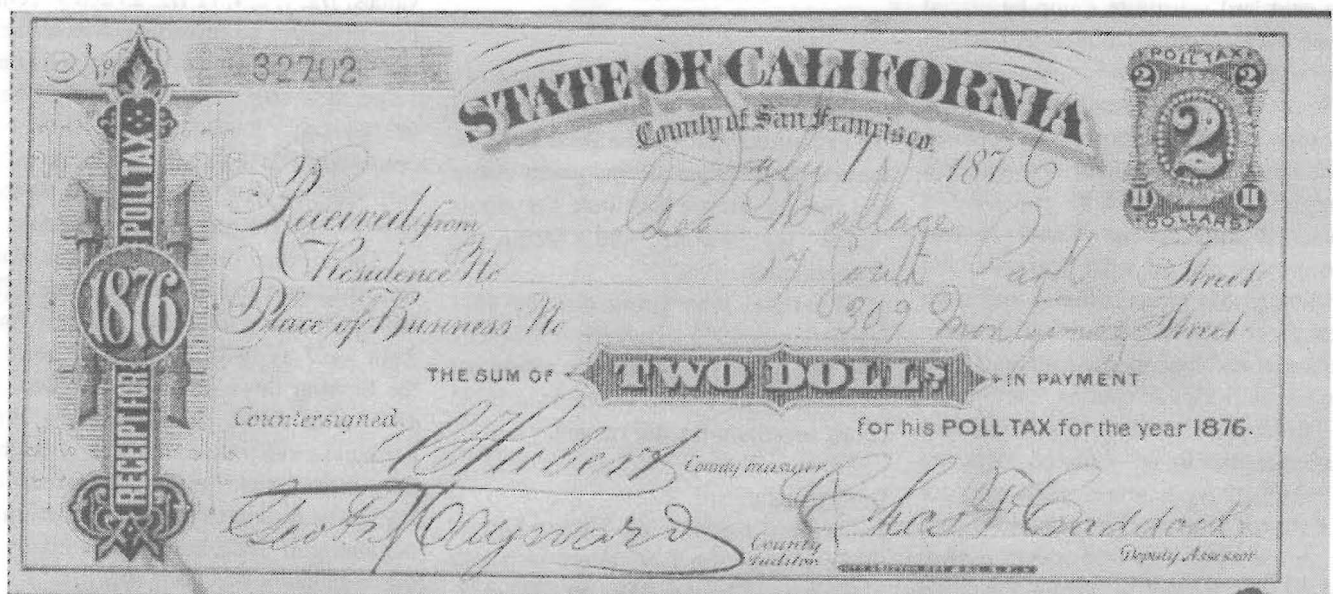 No. 32702
STATE OF CALIFORNIA
County of San Francisco.
July 1 1876
POLL TAX
2 2
2
II II
DOLLARS
RECEIPT FOR 1876 POLL TAX
Received from Geo Wallace
Residence No 17 South Park Street
Place of Business No 309 Montgomery Street
THE SUM OF TWO DOLLS IN PAYMENT
for his POLL TAX for the year 1876.
Countersigned
Hubert County Treasurer
Geo Hayward County Auditor
Chas F Deputy Assessor